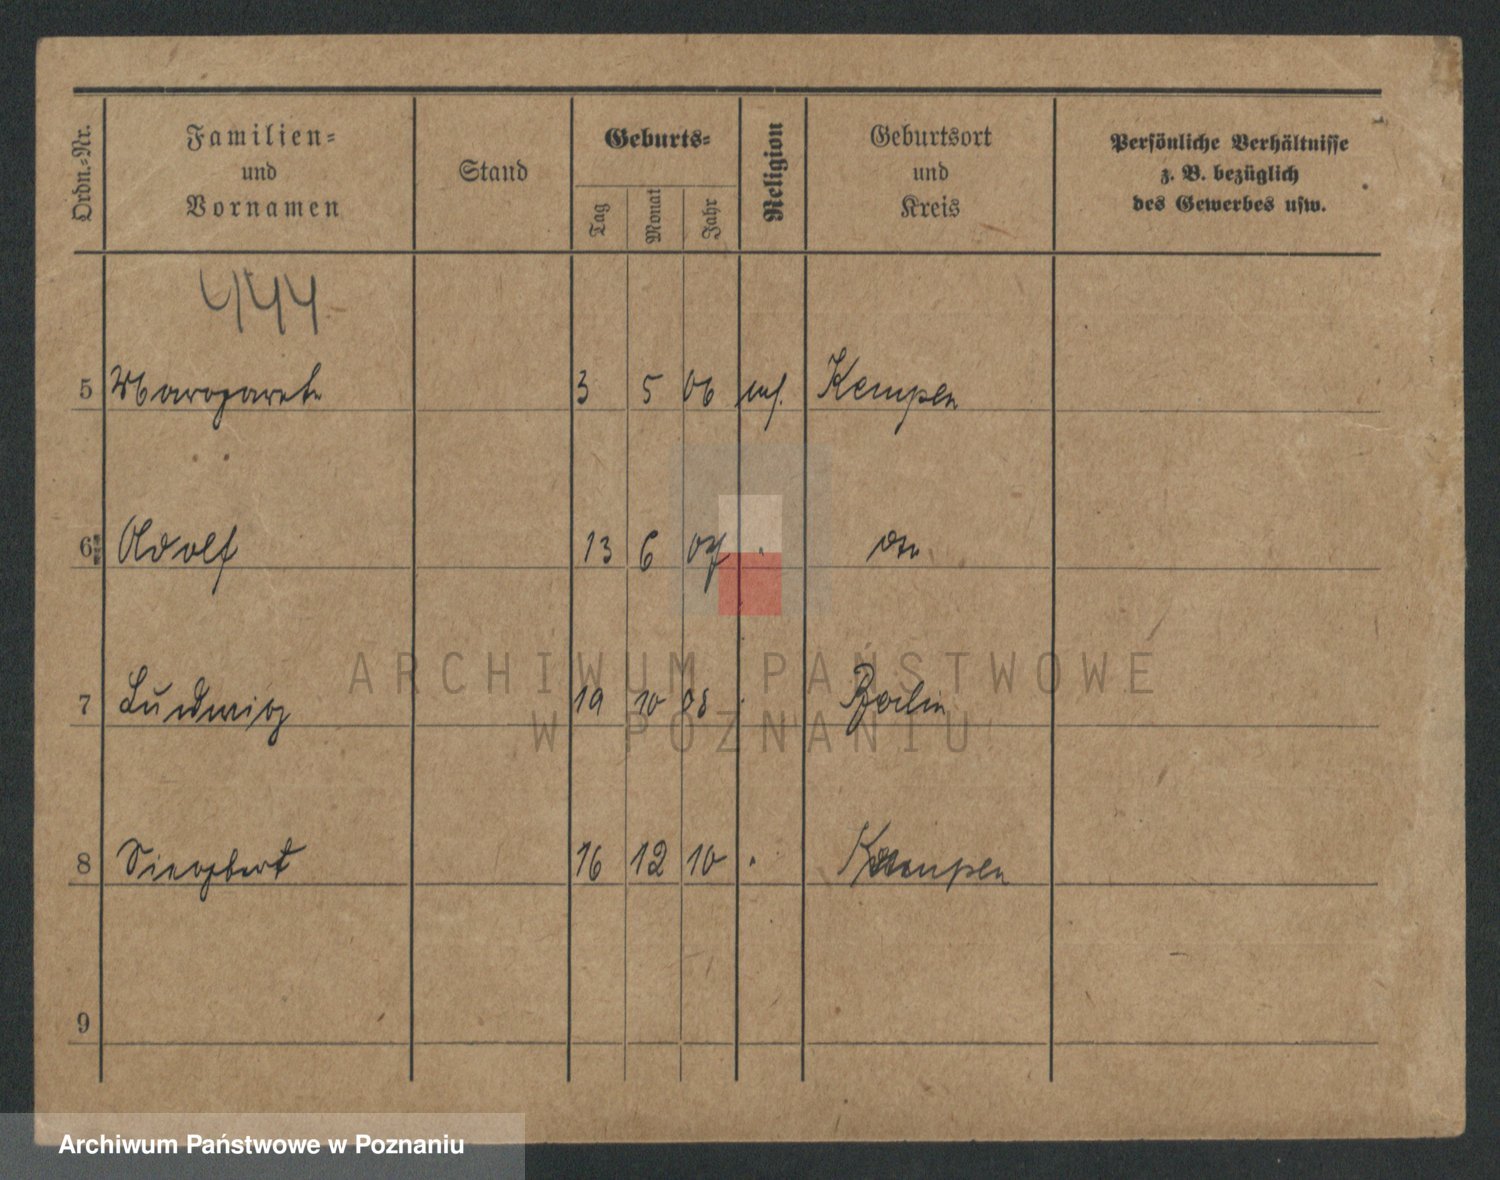 Ordn.-Nr. Familien- und Vornamen Stand Geburts- Tag Monat Jahr Religion Geburtsort und Kreis Persönliche Verhältnisse z. B. bezüglich des Gewerbes usw.
444
5 Margarete 3 5 06 Kempen
6 Adolf 13 6 07 do
7 Ludwig 19 10 08 Berlin
8 Siegbert 16 12 10 Kempen
9
ARCHIWUM PAŃSTWOWE
W POZNANIU
Archiwum Państwowe w Poznaniu